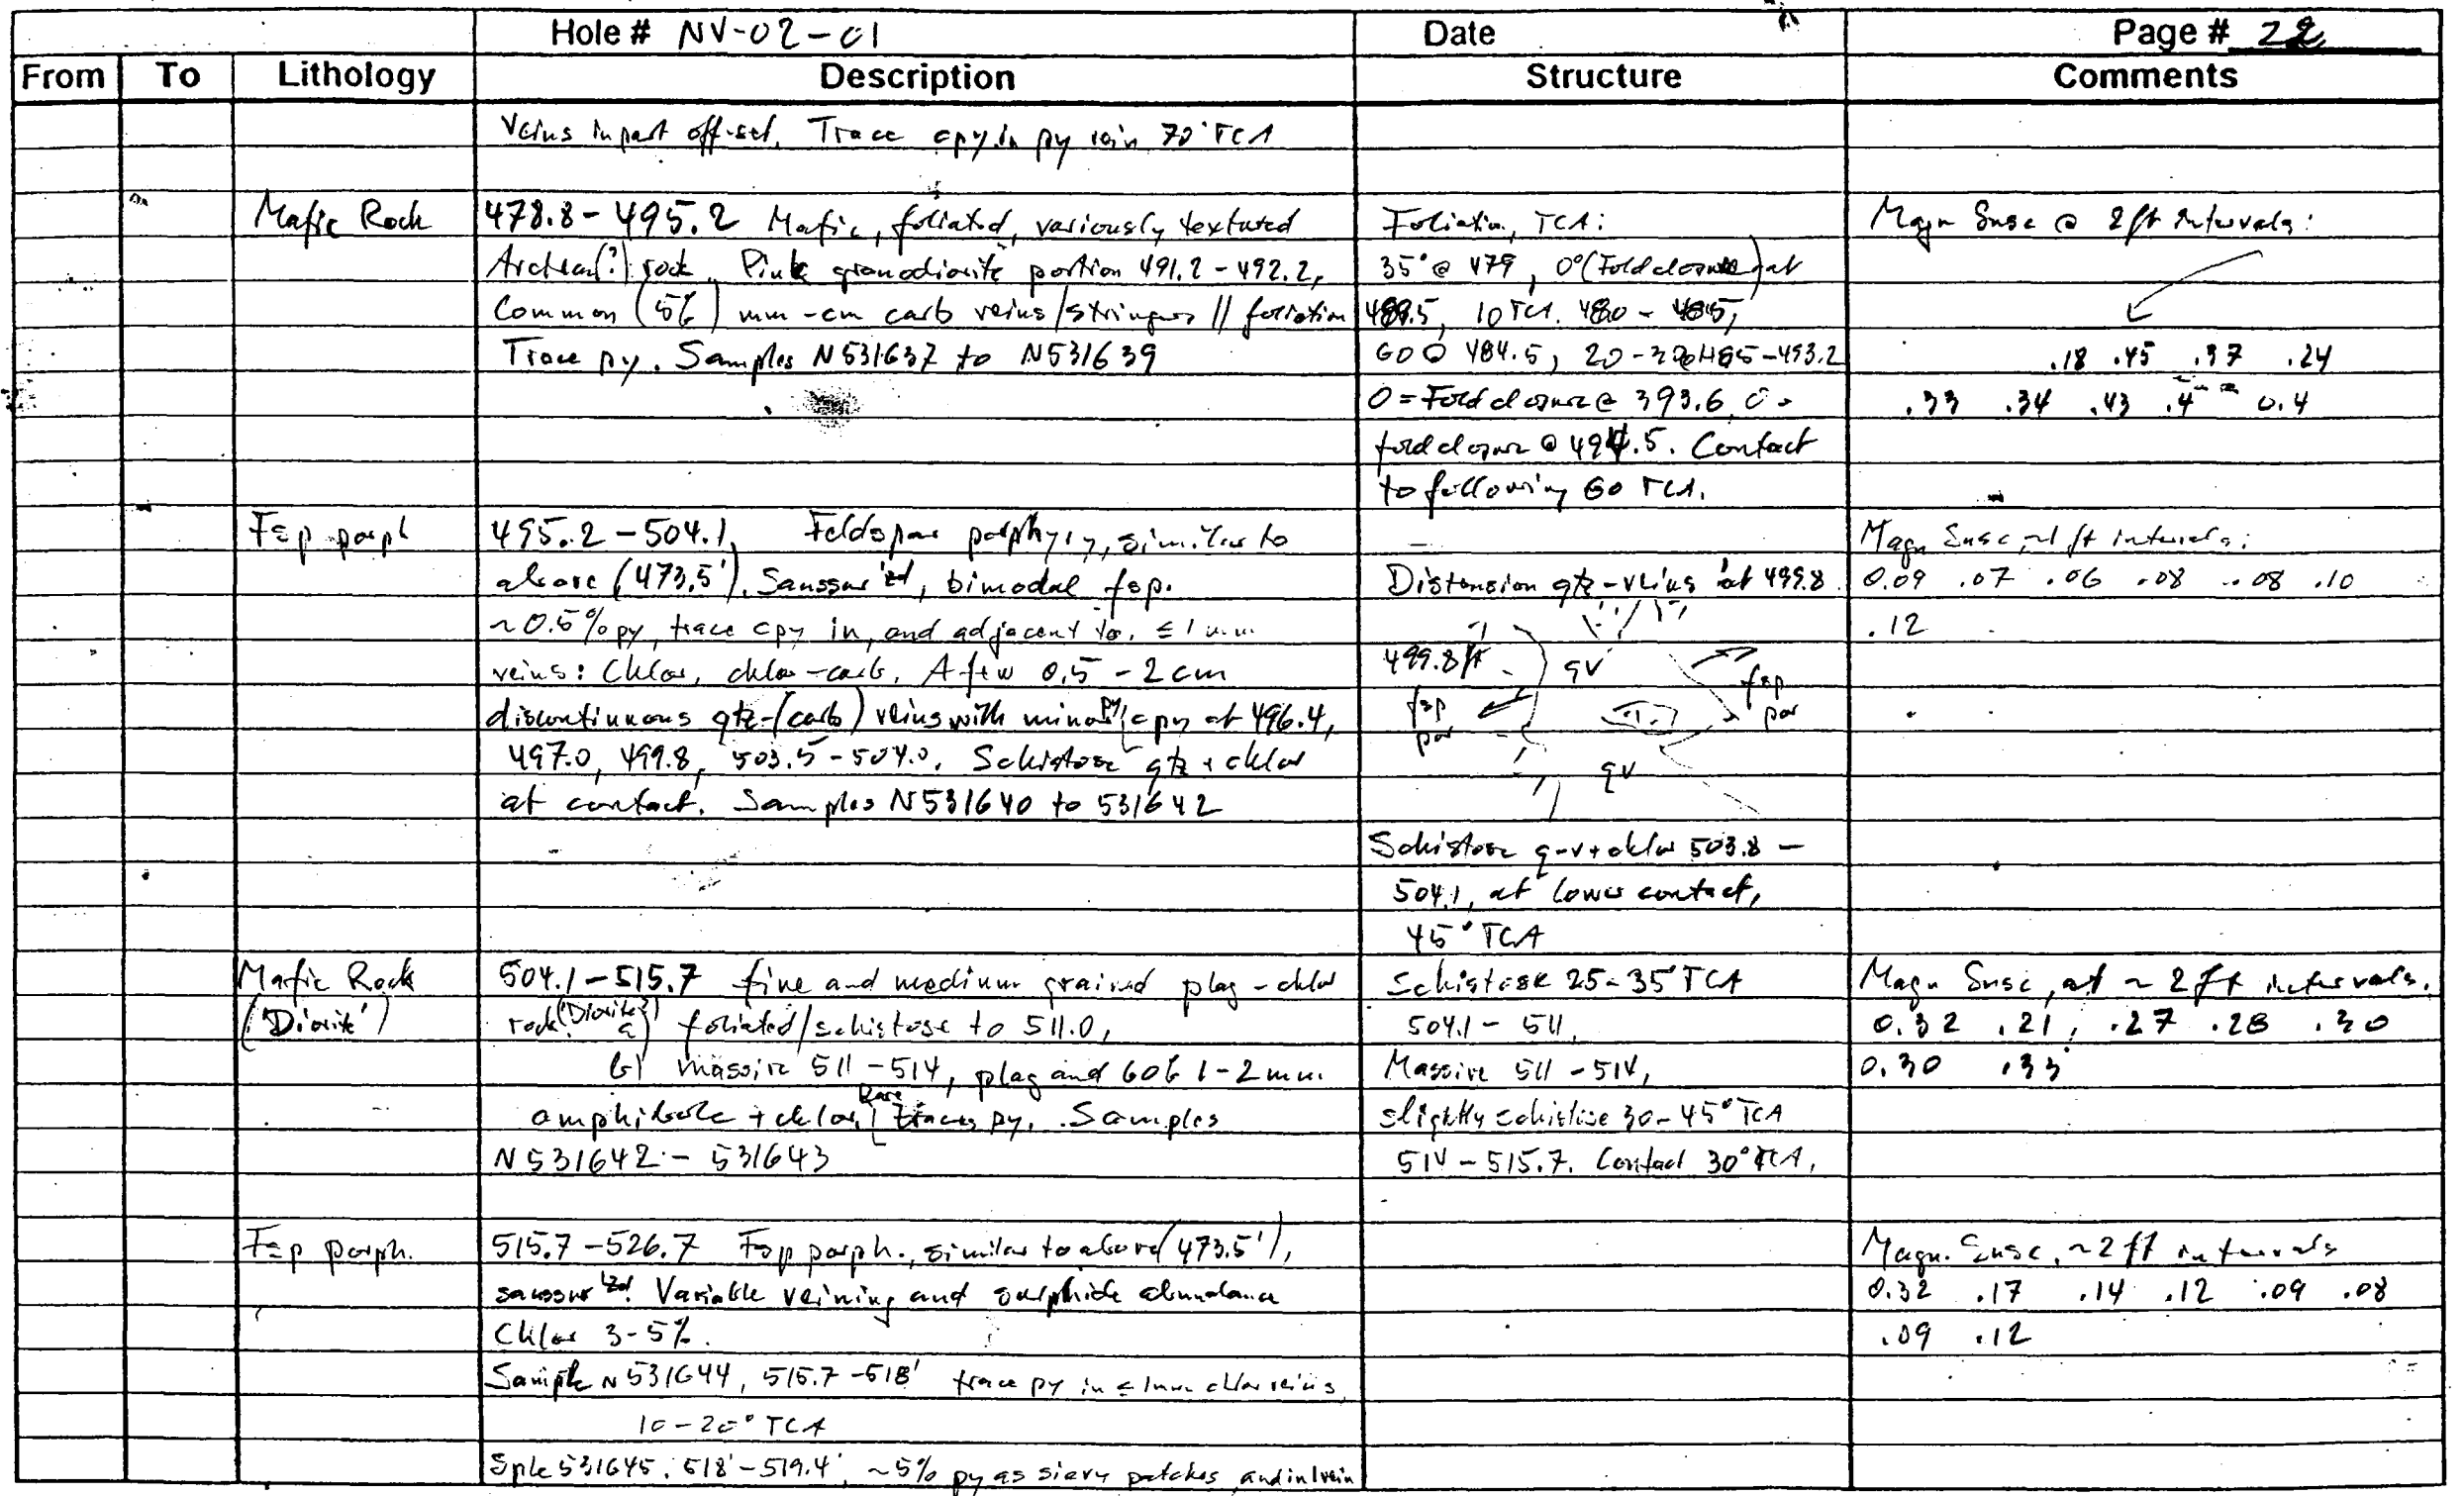 Hole # NV-02-01 Date Page # 22
From To Lithology Description Structure Comments
Veins in part off-set. Trace cpy in py vein 70° TCA
Mafic Rock
478.8-495.2 Mafic, foliated, variously textured
Archean(?) rock. Pink granodiorite portion 491.2-492.2,
Common (5%) mm-cm carb veins/stringers // foliation
Trace py. Samples N531637 to N531639
Foliation, TCA:
35° @ 479, 0° (Fold closure) at
489.5, 10 TCA. 480-485,
60 @ 484.5, 20-30 @ 485-493.2
0 = Fold closure @ 393.6, 0 =
fold closure @ 494.5. Contact
to following 60 TCA.
Magn Susc @ 2 ft intervals:
.18 .45 .37 .24
.33 .34 .43 .4 0.4
Fsp porph
495.2-504.1, Feldspar porphyry, similar to
above (473.5'). Saussur'zd, bimodal fsp.
~0.5% py, trace cpy in, and adjacent to, ≤1 mm
veins: Chlor, chlor-carb. A few 0.5-2cm
discontinuous qtz-(carb) veins with minor py, cpy at 496.4,
497.0, 499.8, 503.5-504.0. Schistose qtz + chlor
at contact. Samples N531640 to 531642
Distension qtz-veins at 499.8
499.8 ft
qv
fsp
por
fsp
por
qv
Schistose q-v + chlor 503.8-
504.1, at lower contact,
45° TCA
Magn Susc, ~1 ft intervals:
0.09 .07 .06 .08 .08 .10
.12
Mafic Rock
('Diorite')
504.1-515.7 fine and medium grained plag-chlor
rock. ('Diorite') a) foliated/schistose to 511.0,
b) massive 511-514, plag and 60% 1-2mm
amphibole + chlor, Rare traces py. Samples
N531642-531643
Schistose 25-35° TCA
504.1-511,
Massive 511-514,
slightly schistose 30-45° TCA
514-515.7. Contact 30° TCA,
Magn Susc, at ~2 ft intervals.
0.32 .21, .27 .28 .30
0.30 .33
Fsp porph.
515.7-526.7 Fsp porph., similar to above (473.5'),
saussur'zd. Variable veining and sulphide abundance
Chlor 3-5%.
Sample N531644, 515.7-518' trace py in ≤1mm chlor veins,
10-20° TCA
Sple 531645, 518'-519.4', ~5% py as sievy patches, and in 1 vein
Magn. Susc, ~2 ft intervals
0.32 .17 .14 .12 .09 .08
.09 .12